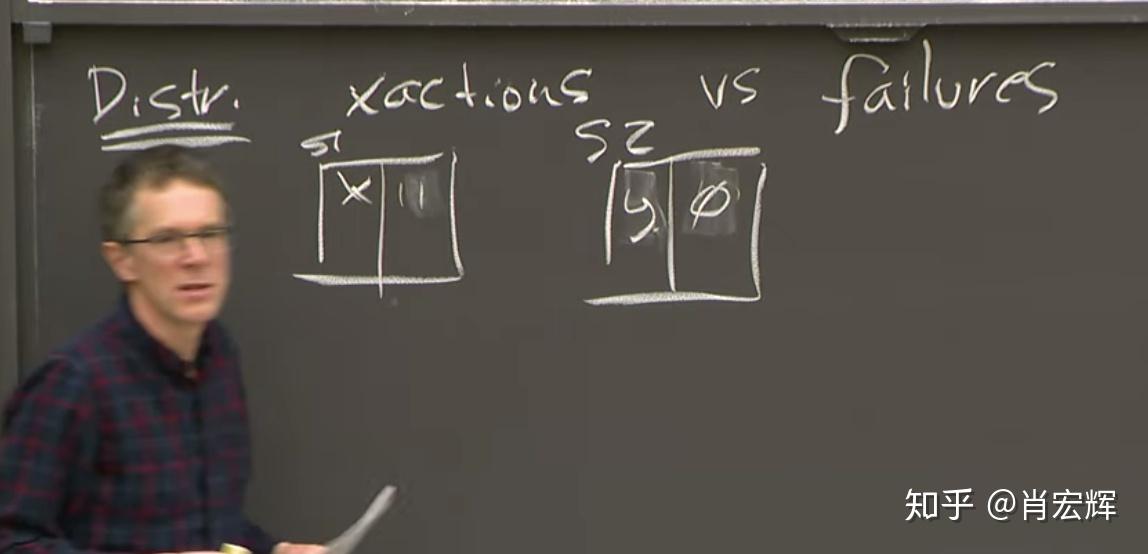 Distr. xactions vs failures
S1 S2
x 11 y ø
知乎 @肖宏辉